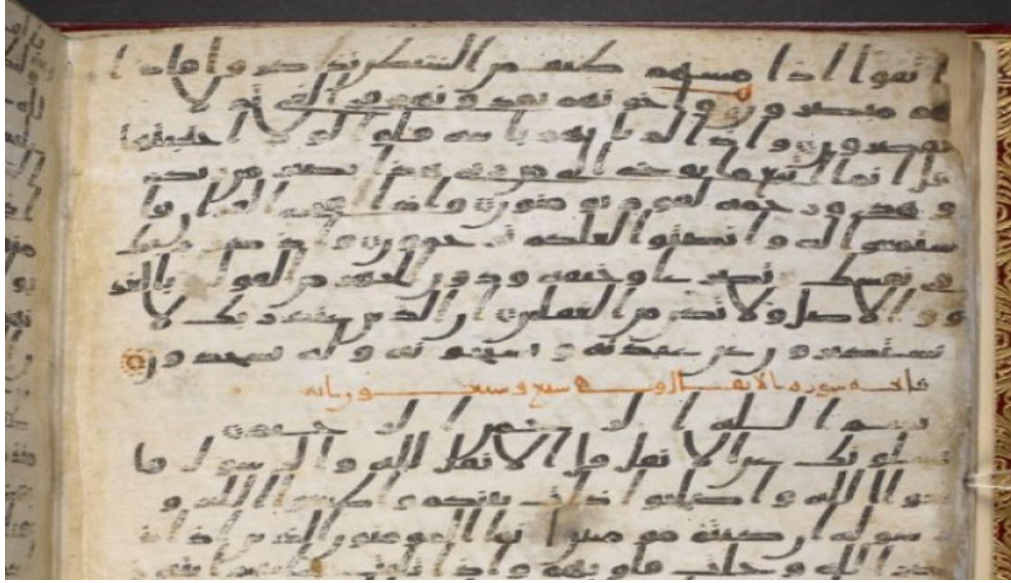 اتقوا اذا مسهم طيف من الشيطن تذكروا فاذا
هم مبصرون واخونهم يمدونهم في الغي ثم لا
يقصرون واذا لم تاتهم باية قالوا لولا اجتبيتها
قل انما اتبع ما يوحى الي من ربي هذا بصئر من ربكم
وهدى ورحمة لقوم يومنون واذا قرى القران فا
ستمعوا له وانصتوا لعلكم ترحمون واذكر ربك
في نفسك تضرعا وخيفة ودون الجهر من القول بالغد
و والاصل ولا تكن من الغفلين ان الذين عند ربك لا
يستكبرون عن عبدته ويسبحونه وله يسجدون
فاتحة سورة الانفال وهي سبع وسبعون اية
بسم الله الرحمن الرحيم
يسلونك عن الانفل قل الانفل لله والرسول فا
تقوا الله واصلحوا ذات بينكم واطيعوا الله و
رسوله ان كنتم مومنين انما المومنون الذين اذا ذ
كر الله وجلت قلوبهم واذا تليت عليهم ايته